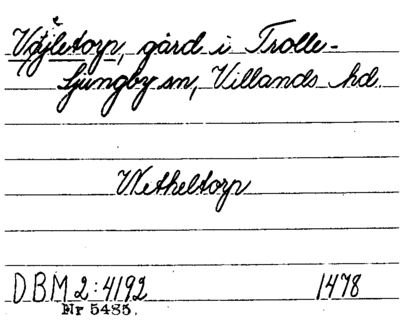 Väjletorp, gård i Trolle-
Ljungby sn, Villands hd.
Wetheltorp
DBM 2:4192 1478
Nr 5485.